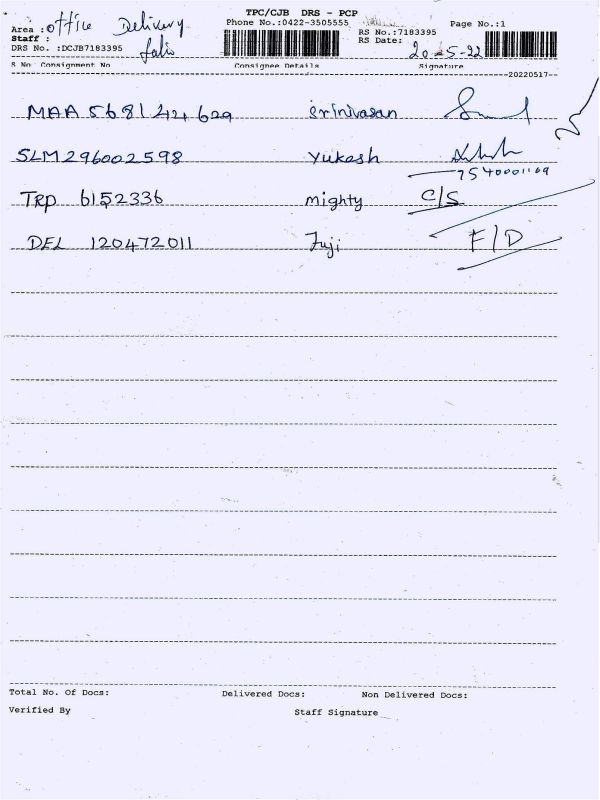 TPC/CJB DRS - PCP
Area : office Delivery
Phone No.:0422-3505555
Page No.:1
Staff :
RS No.:7183395
DRS No. :DCJB7183395
RS Date: 20-5-22
S No Consignment No Consignee Details Signature
--20220517--
MAA 568142629 Srinivasan
SLM 296002598 Yukesh
7540001109
TRP 6152336 mighty C/S
DEL 120472011 Fuji F/D
Total No. Of Docs: Delivered Docs: Non Delivered Docs:
Verified By Staff Signature